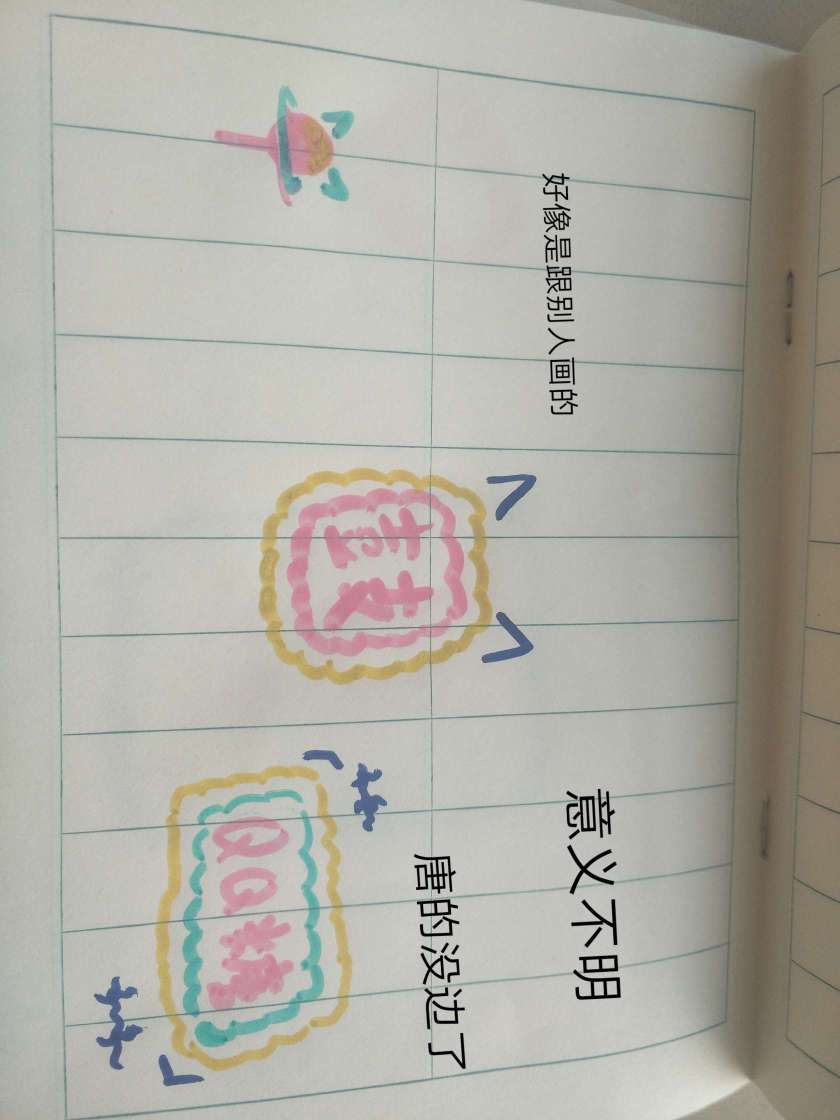 好像是跟别人画的
意义不明
唐的没边了
QQ糖